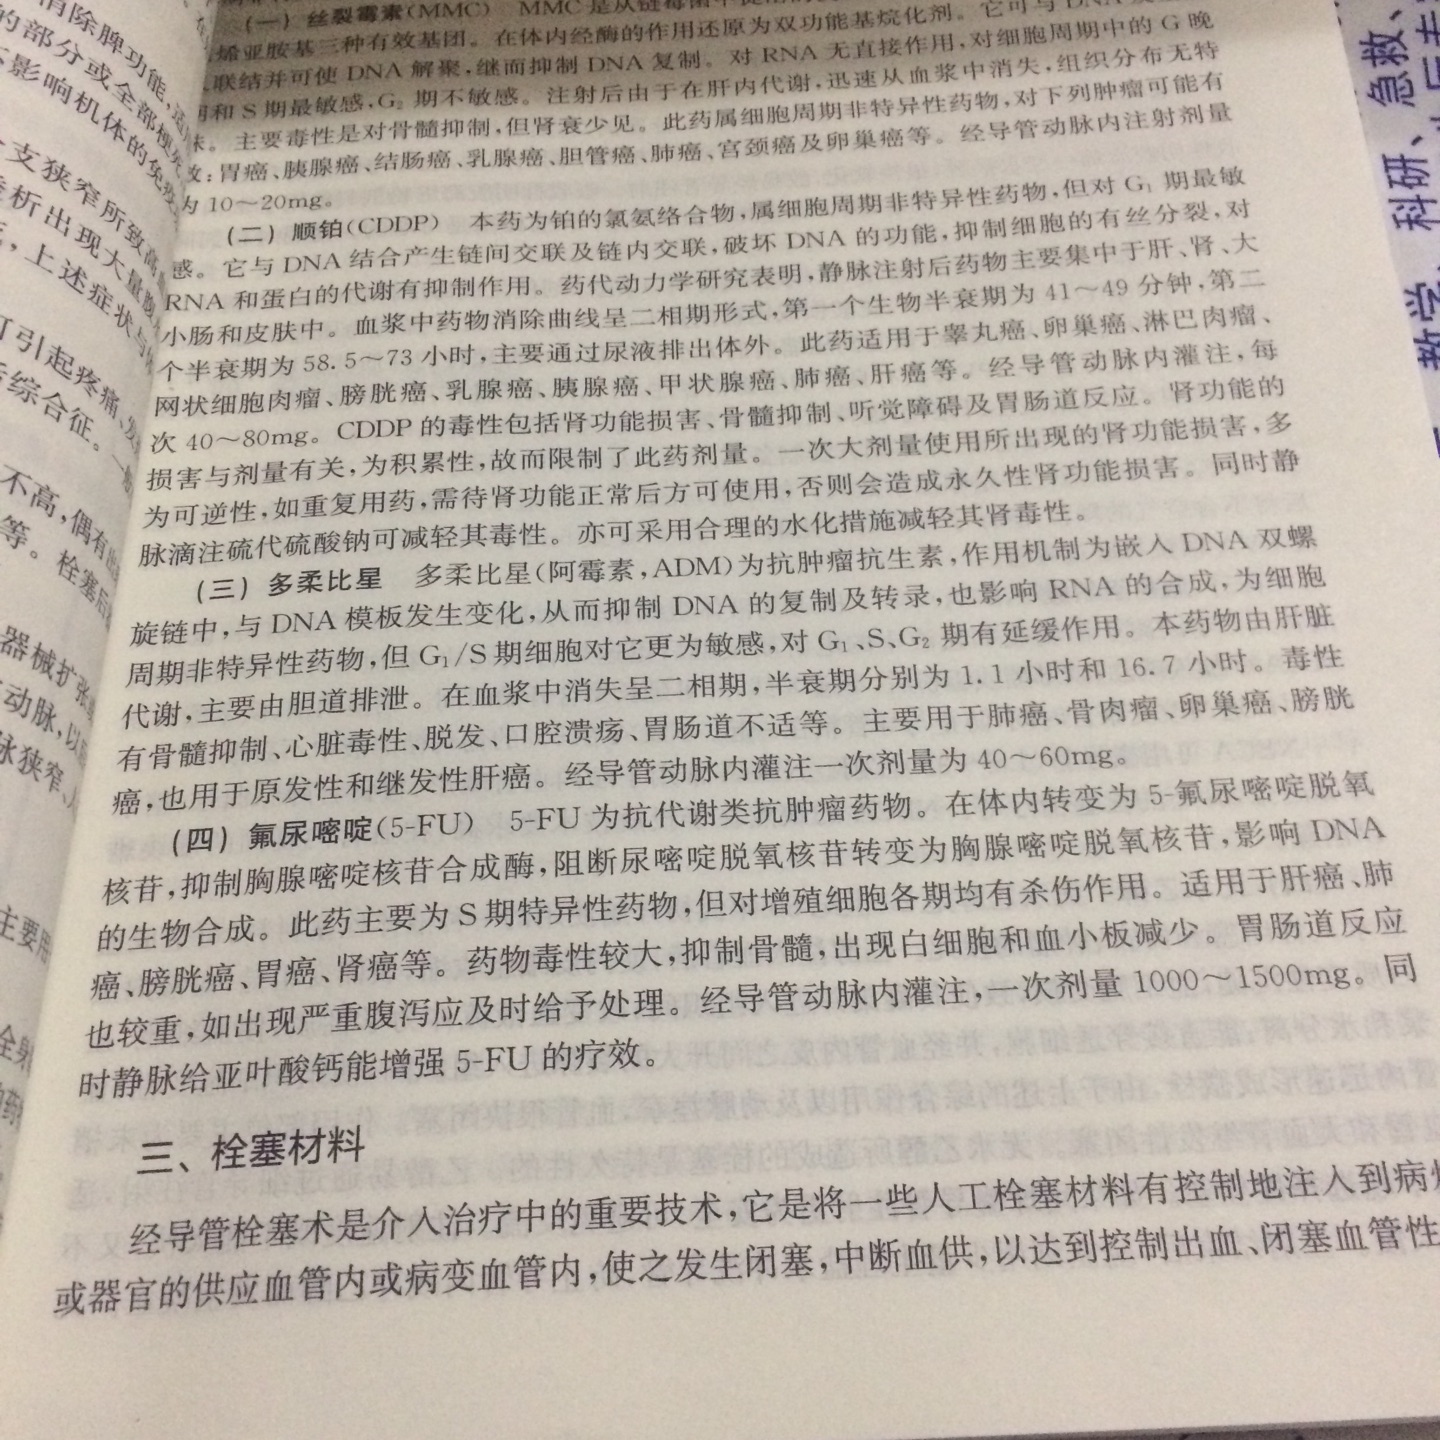 (一) 丝裂霉素(MMC) MMC 是从链霉菌中提
烯亚胺基三种有效基团。在体内经酶的作用还原为双功能基烷化剂。它可与 DNA
联结并可使 DNA 解聚,继而抑制 DNA 复制。对 RNA 无直接作用,对细胞周期中的 G 晚
和 S 期最敏感,G₂ 期不敏感。注射后由于在肝内代谢,迅速从血浆中消失,组织分布无特
主要毒性是对骨髓抑制,但肾衰少见。此药属细胞周期非特异性药物,对下列肿瘤可能有
效:胃癌、胰腺癌、结肠癌、乳腺癌、胆管癌、肺癌、宫颈癌及卵巢癌等。经导管动脉内注射剂量
为 10～20mg。
(二) 顺铂(CDDP) 本药为铂的氯氨络合物,属细胞周期非特异性药物,但对 G₁ 期最敏
感。它与 DNA 结合产生链间交联及链内交联,破坏 DNA 的功能,抑制细胞的有丝分裂,对
RNA 和蛋白的代谢有抑制作用。药代动力学研究表明,静脉注射后药物主要集中于肝、肾、大
小肠和皮肤中。血浆中药物消除曲线呈二相期形式,第一个生物半衰期为 41～49 分钟,第二
个半衰期为 58.5～73 小时,主要通过尿液排出体外。此药适用于睾丸癌、卵巢癌、淋巴肉瘤、
网状细胞肉瘤、膀胱癌、乳腺癌、胰腺癌、甲状腺癌、肺癌、肝癌等。经导管动脉内灌注,每
次 40～80mg。CDDP 的毒性包括肾功能损害、骨髓抑制、听觉障碍及胃肠道反应。肾功能的
损害与剂量有关,为积累性,故而限制了此药剂量。一次大剂量使用所出现的肾功能损害,多
为可逆性,如重复用药,需待肾功能正常后方可使用,否则会造成永久性肾功能损害。同时静
脉滴注硫代硫酸钠可减轻其毒性。亦可采用合理的水化措施减轻其肾毒性。
(三) 多柔比星 多柔比星(阿霉素,ADM)为抗肿瘤抗生素,作用机制为嵌入 DNA 双螺
旋链中,与 DNA 模板发生变化,从而抑制 DNA 的复制及转录,也影响 RNA 的合成,为细胞
周期非特异性药物,但 G₁/S 期细胞对它更为敏感,对 G₁、S、G₂ 期有延缓作用。本药物由肝脏
代谢,主要由胆道排泄。在血浆中消失呈二相期,半衰期分别为 1.1 小时和 16.7 小时。毒性
有骨髓抑制、心脏毒性、脱发、口腔溃疡、胃肠道不适等。主要用于肺癌、骨肉瘤、卵巢癌、膀胱
癌,也用于原发性和继发性肝癌。经导管动脉内灌注一次剂量为 40～60mg。
(四) 氟尿嘧啶(5-FU) 5-FU 为抗代谢类抗肿瘤药物。在体内转变为 5-氟尿嘧啶脱氧
核苷,抑制胸腺嘧啶核苷合成酶,阻断尿嘧啶脱氧核苷转变为胸腺嘧啶脱氧核苷,影响 DNA
的生物合成。此药主要为 S 期特异性药物,但对增殖细胞各期均有杀伤作用。适用于肝癌、肺
癌、膀胱癌、胃癌、肾癌等。药物毒性较大,抑制骨髓,出现白细胞和血小板减少。胃肠道反应
也较重,如出现严重腹泻应及时给予处理。经导管动脉内灌注,一次剂量 1000～1500mg。同
时静脉给亚叶酸钙能增强 5-FU 的疗效。
三、栓塞材料
经导管栓塞术是介入治疗中的重要技术,它是将一些人工栓塞材料有控制地注入到病
或器官的供应血管内或病变血管内,使之发生闭塞,中断血供,以达到控制出血、闭塞血管性
消除脾功能,适
的部分或全部梗
影响机体的免疫
支狭窄所致高
析出现大量
,上述症状与
可引起疼痛、发
综合征。一
不高,偶有
等。栓塞后
器械扩张
动脉,以
脉狭窄、
主要用
急救、
科研、
教学、